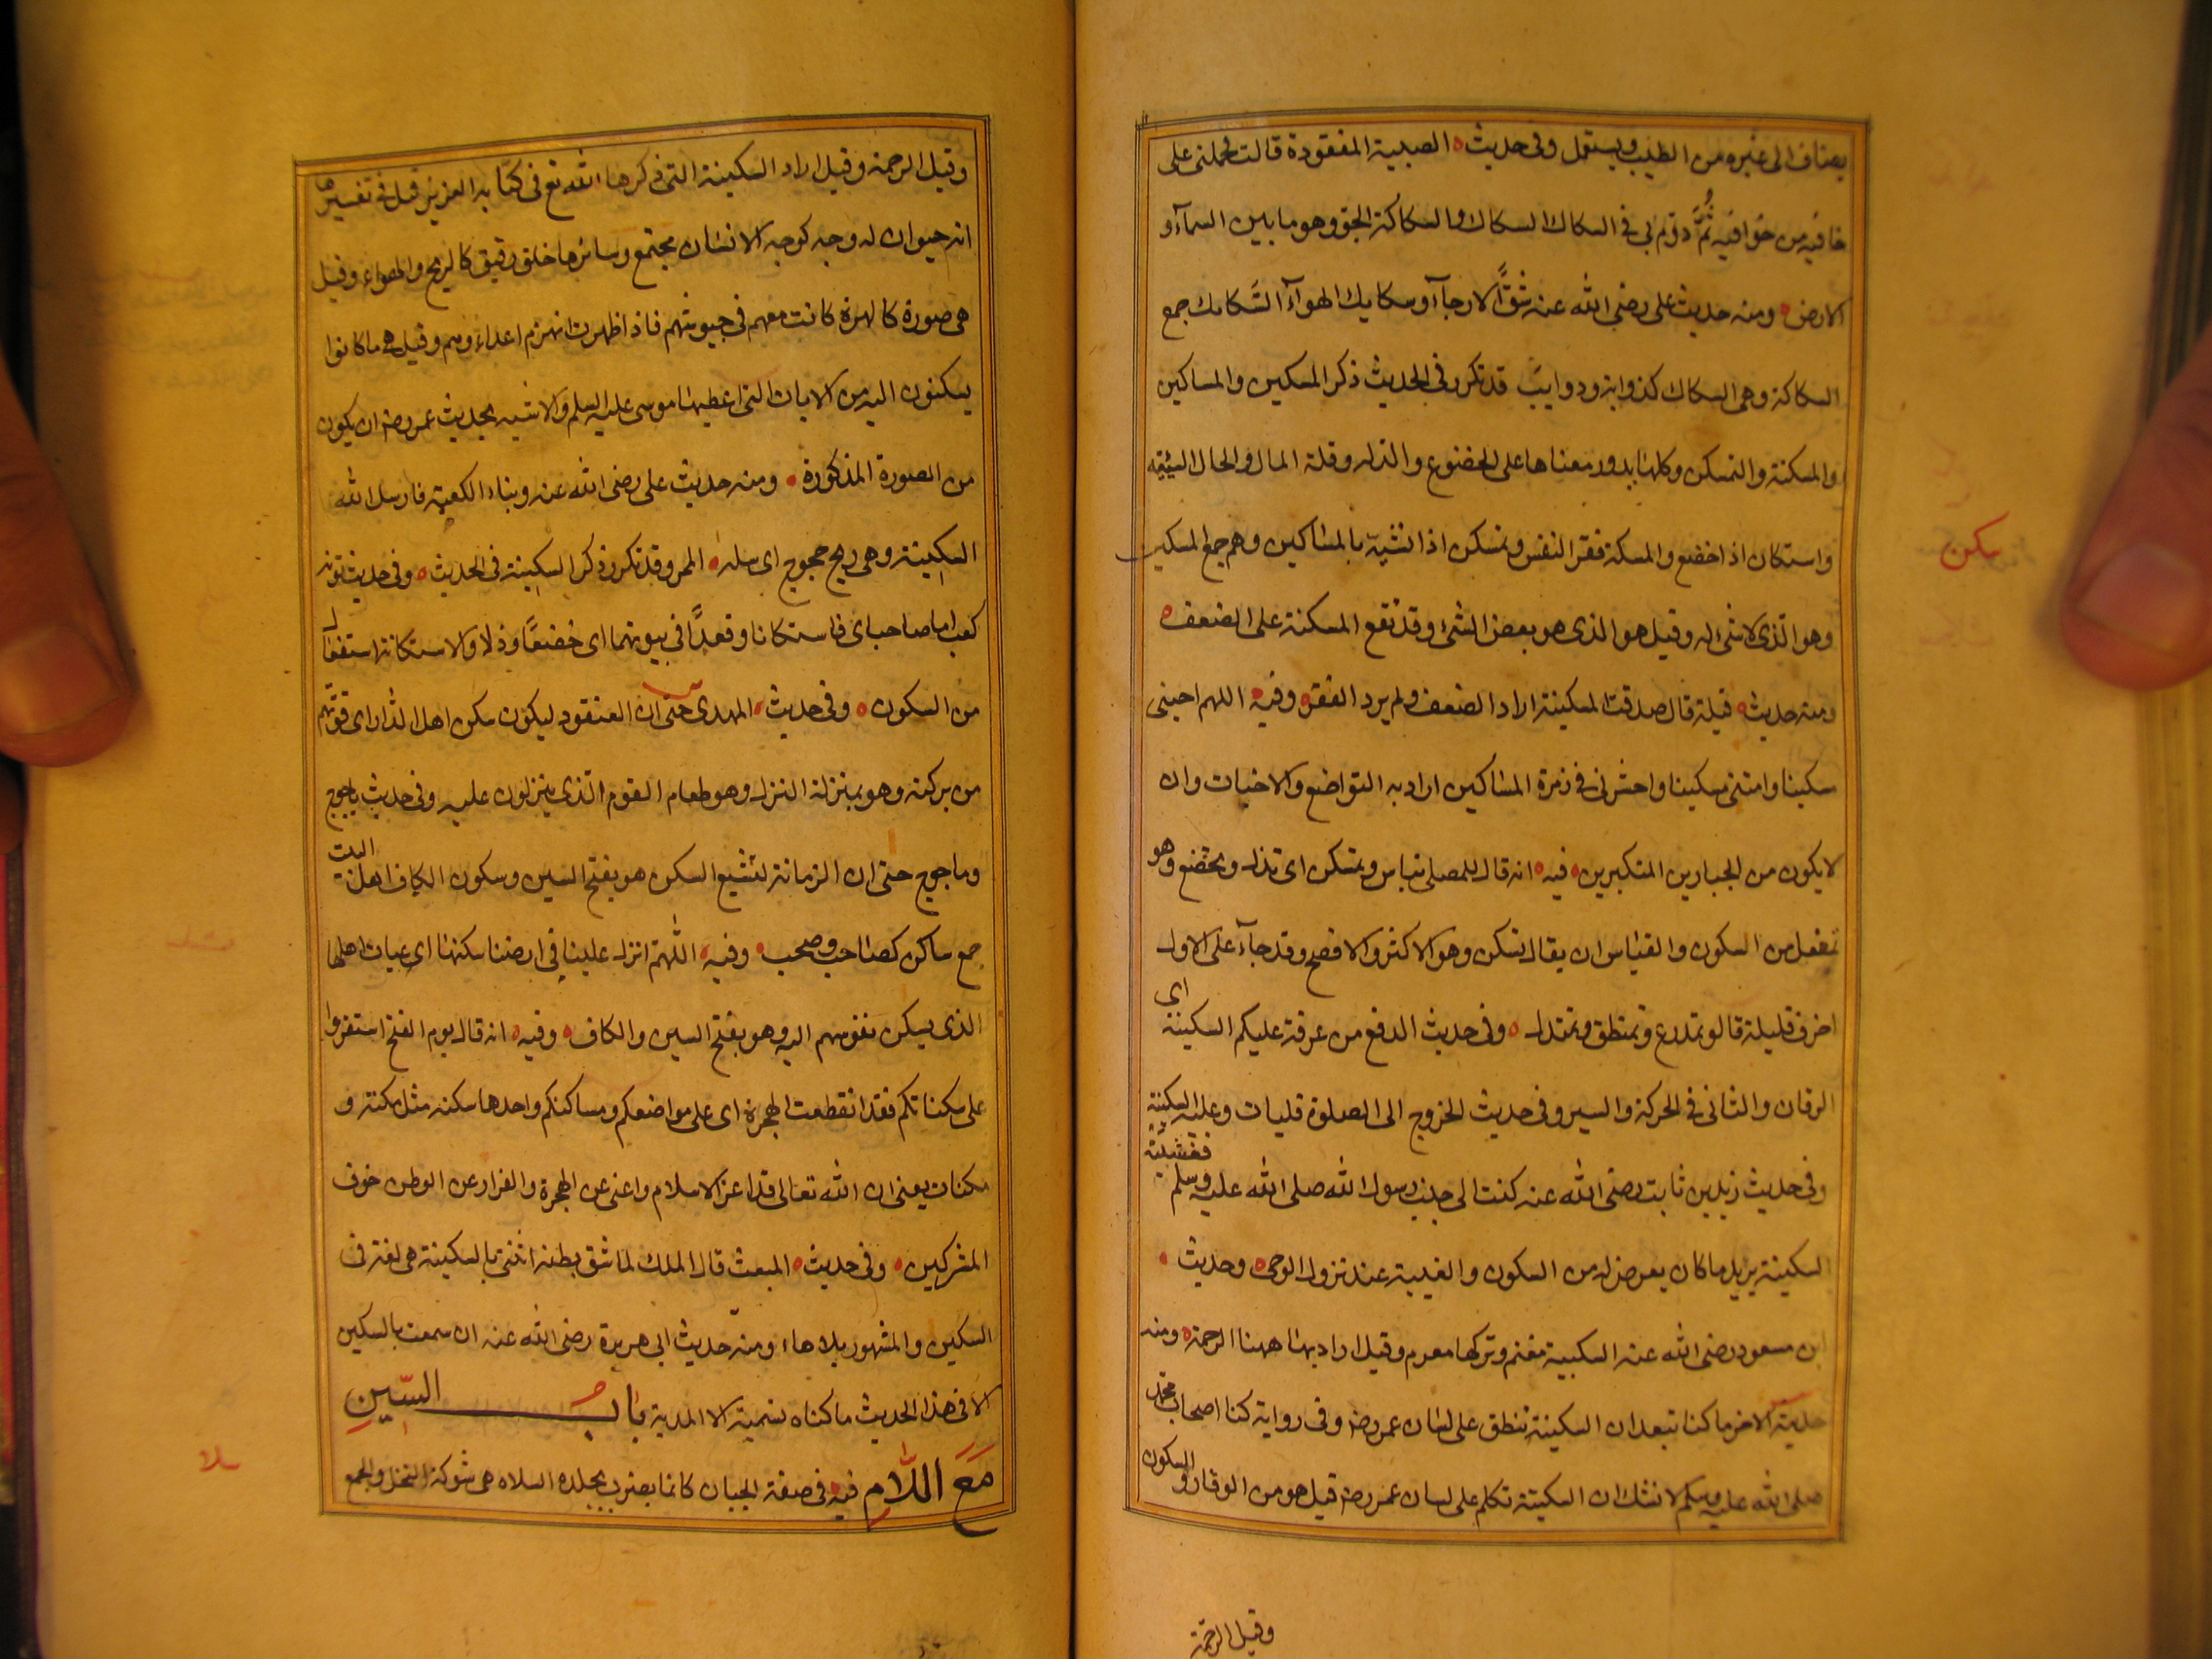 يضاف الى غيره من الطيب ويستعمل وفى حديث الصبية المفقودة قالت فحملنى على
خافية من خوافيه ثم دوم بى فى السكاك السكاك والسكاكة الجو وهو ما بين السمآء و
الارض ومنه حديث على رضى الله عنه شق الارجآء وسكايك الهوآء السكايك جمع
السكاكة وهى السكاك كذوابة ودوايب قد تكرر فى الحديث ذكر المسكين والمساكين
والمسكنة والتمسكن وكلها يدور معناها على الخضوع والذلة وقلة المال والحال السيئة
واستكان اذا خضع والمسكنة فقر النفس وتمسكن اذا تشبه بالمساكين وهم جمع المسكين
سكن
وهو الذى لا شئ له وقيل هو الذى هو بعض الشئ وقد تقع المسكنة على الضعف
ومنه حديث قيلة قال صدقت المسكينة اراد الضعف ولم يرد الفقر وفيه اللهم احينى
مسكينا وامتنى مسكينا واحشرنى فى زمرة المساكين اراد به التواضع والاخبات وان
لا يكون من الجبارين المتكبرين فيه انه قال للمصلى تباس وتمسكن اى تذل وتخضع وهو
تمفعل من السكون والقياس ان يقال تسكن وهو الاكثر والافصح وقد جآء على الاول
احرف قليلة قالو تمدرع وتمنطق وتمندل وفى حديث الدفع من عرفة عليكم السكينة اى
الوقار والثانى فى الحركة والسير وفى حديث الخروج الى الصلوة فليات وعليه السكينة
وفى حديث زيد بن ثابت رضى الله عنه كنت الى جنب رسول الله صلى الله عليه وسلم فغشيته
السكينة يريد ما كان يعرض له من السكون والغيبة عند نزول الوحى وحديث
ابن مسعود رضى الله عنه السكينة مغنم وتركها مغرم وقيل اراد بها ههنا الرحمة ومنه
حديثه الاخر ما كنا نبعد ان السكينة تنطق على لسان عمر رضه وفى رواية كنا اصحاب محمد
صلى الله عليه وسلم لا نشك ان السكينة تكلم على لسان عمر رضه قيل هو من الوقار والسكون
وقيل الرحمة
وقيل الرحمة وقيل اراد السكينة التى ذكرها الله تع فى كتابه العزيز قيل فى تفسيرها
انه حيوان له وجه كوجه الانسان مجتمع وسائرها خلق رقيق كالريح والهواء وقيل
هى صورة كالهرة كانت معهم فى جيوشهم فاذا ظهرت انهزم اعداءوهم وقيل هى ما كانوا
يسكنون اليه من الايات التى اعطيها موسى عليه السلم والاشبه بحديث عمر رضه ان يكون
من الصورة المذكورة ومنه حديث على رضى الله عنه وبناء الكعبة فارسل الله
السكينة وهى ريح خجوج اى سلة الممر وقد تكرر ذكر السكينة فى الحديث وفى حديث توبة
كعب اما صاحباى فاستكانا وقعدا فى بيوتهما اى خضعا وذلا والاستكانة استفعال
من السكون وفى حديث المهدى حتى ان العنقود ليكون سكن اهل الدار اى قوتهم
من بركته وهو بمنزلة النزل وهو طعام القوم الذى ينزلون عليه وفى حديث ياجوج
وماجوج حتى ان الزمانة لتشبع السكن هو بفتح السين وسكون الكاف اهل البيت
جمع ساكن كصاحب وصحب وفيه اللهم انزل علينا فى ارضنا سكنها اى غياث اهلها
الذى يسكن نفوسهم اليه وهو بفتح السين والكاف وفيه انه قال يوم الفتح استقروا
على سكناتكم فقد انقطعت الهجرة اى على مواضعكم ومساكنكم واحدها سكنه مثل مكنة و
مكنات يعنى ان الله تعالى قد اعز الاسلام واغنى عن الهجرة والفرار عن الوطن خوف
المشركين وفى حديث المبعث قال الملك لما شق بطنه ائتنى بالسكينة هى لغة فى
السكين والمشهور بلا هاء ومنه حديث ابى هريرة رضى الله عنه ان سمعت بالسكين
الا فى هذا الحديث ما كنا نسميه الا المدية باب السين
مع اللام فيه فى صفة الجبان كانما يضرب جلده السلاه هى شوكة النخل والجمع
سلا